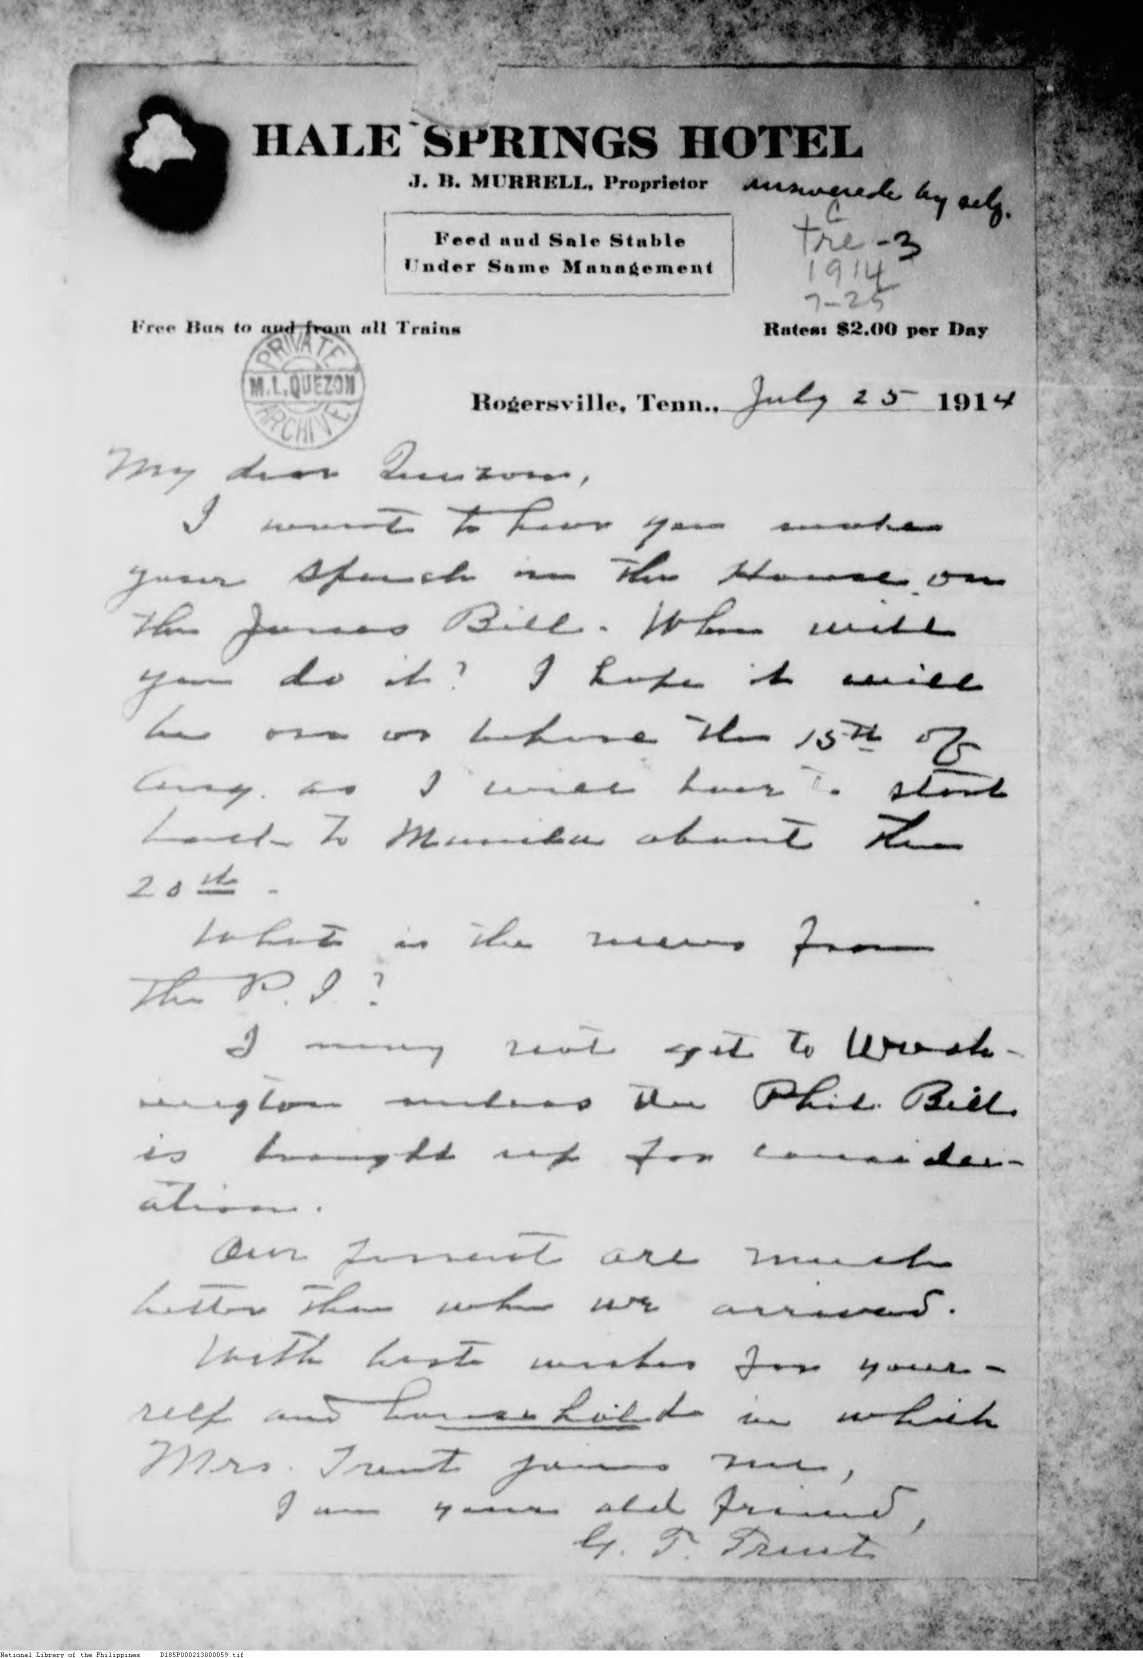 HALE SPRINGS HOTEL
J. B. MURRELL, Proprietor
answered by self.
Feed and Sale Stable
Under Same Management
C
Tre-3
1914
7-25
Free Bus to and from all Trains
Rates: $2.00 per Day
PRIVATE
M.L.QUEZON
ARCHIVE
Rogersville, Tenn., July 25 1914
My dear Quezon,
I want to hear you make
your speech in the House on
the Jones Bill. When will
you do it? I hope it will
be on or before the 15th of
Aug. as I will have to start
back to Manila about the
20th.
What is the news from
the P. I.?
I may not get to Wash-
ington unless the Phil. Bill
is brought up for consider-
ation.
Our parents are much
better than when we arrived.
With best wishes for your-
self and household in which
Mrs. Trent joins me,
I am your old friend,
G. T. Trent
National Library of the Philippines D185P000213800059.tif